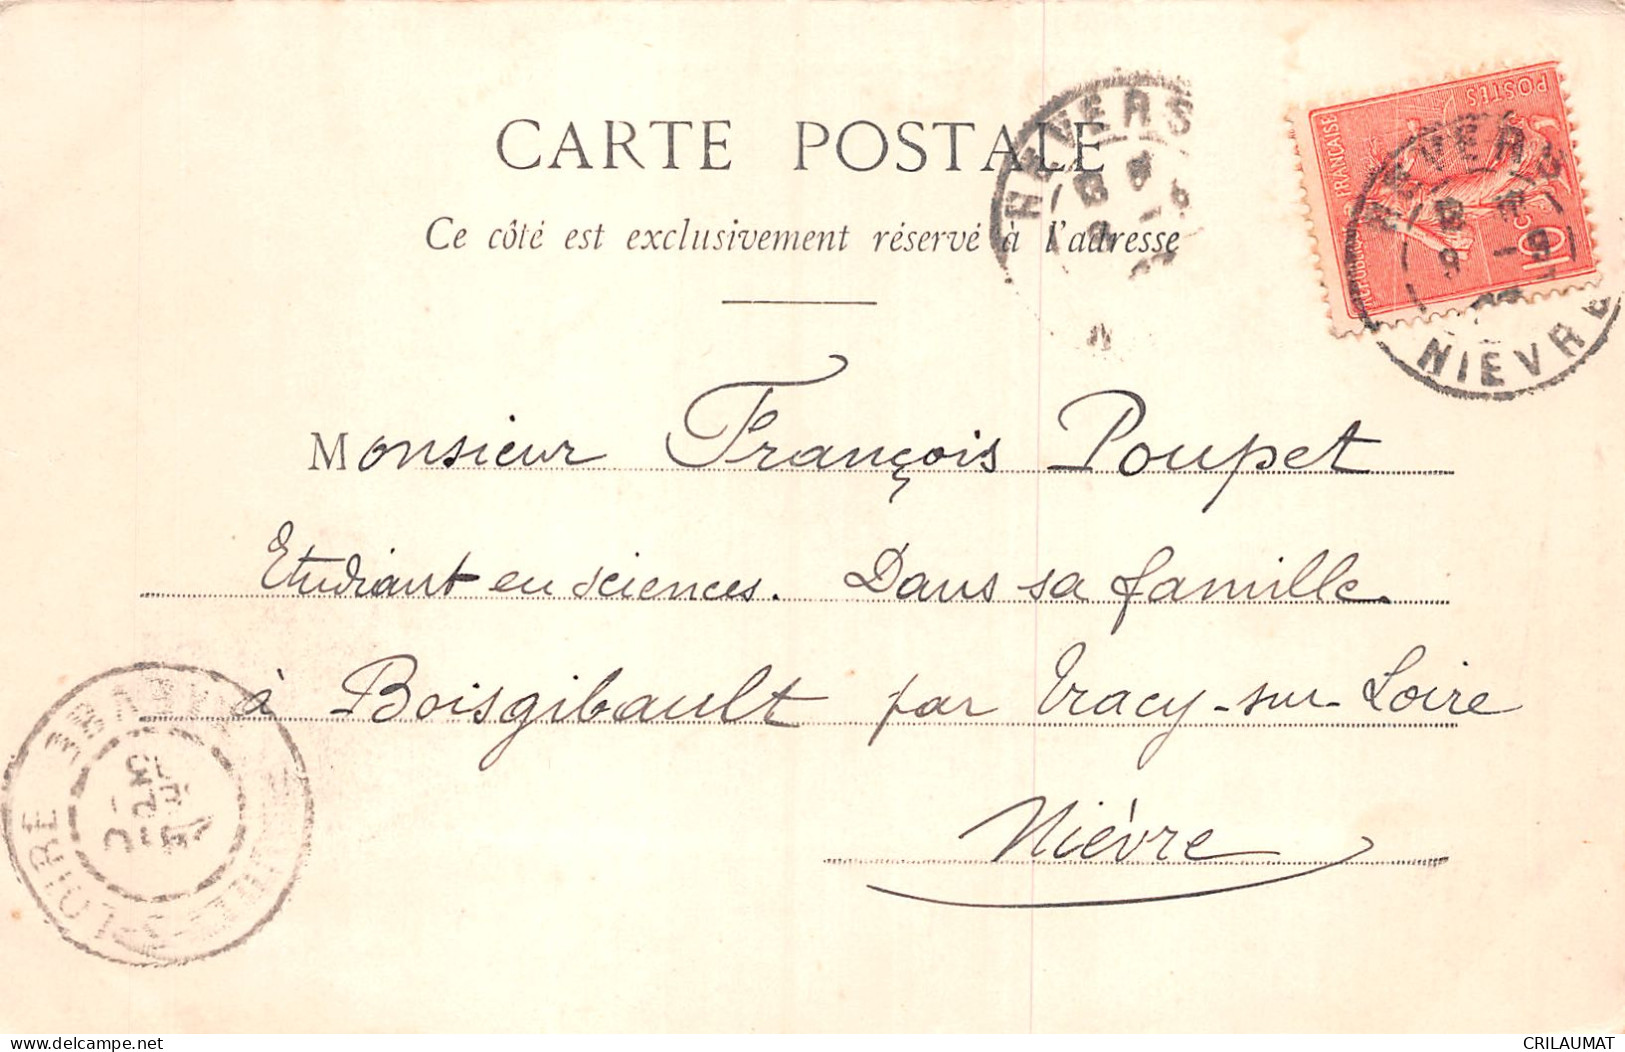 CARTE POSTALE
Ce côté est exclusivement réservé à l'adresse
NEVERS
POSTES
FRANÇAISE
10
NEVERS
NIEVRE
Monsieur François Poupet
Etudiant en sciences. Dans sa famille.
à Boisgibault par Tracy-sur-Loire
Nièvre
LOIRE
CRILAUMAT
delcampe.net